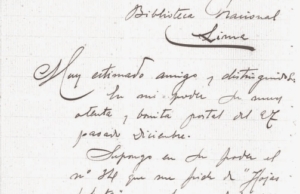 Biblioteca Nacional
Lima
Muy estimado amigo y distinguido
En mi poder su muy
atenta y bonita postal del 27
pasado Diciembre.
Supongo en su poder el
nº 34 que me pide de "Hojas